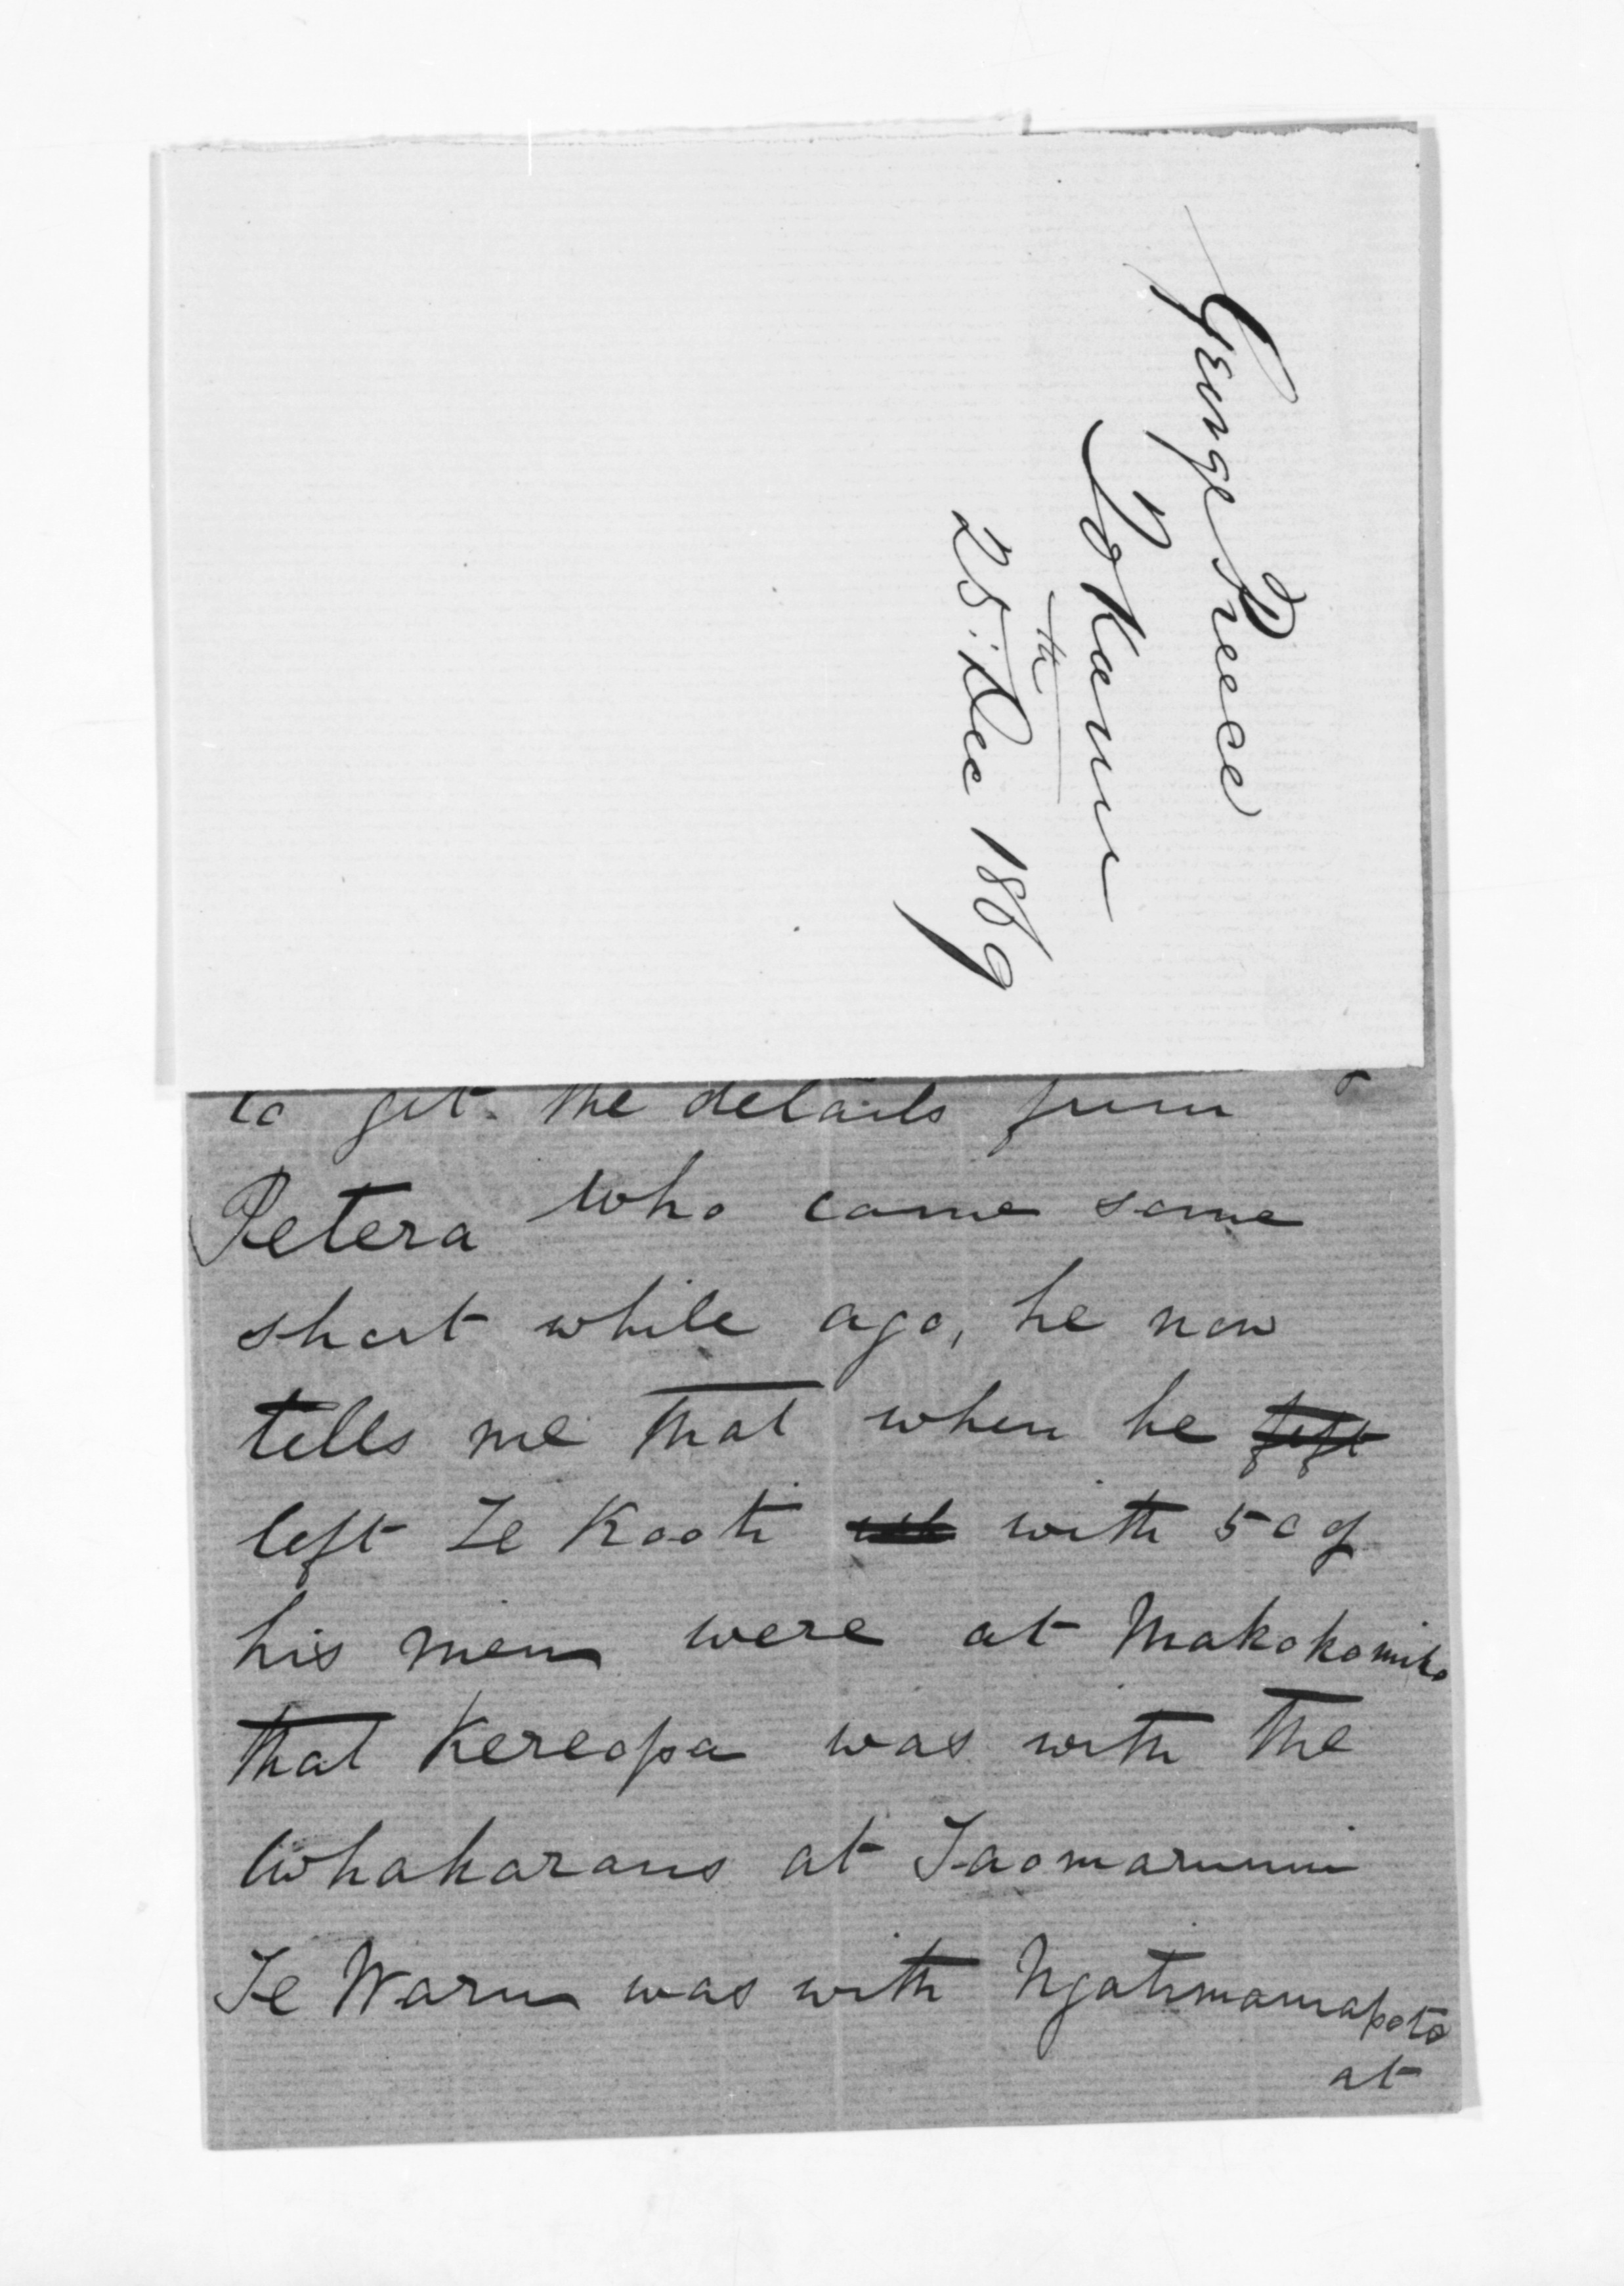 George Preece
Tokanu
25th Dec 1869
to get the details from
Petera who came some
short while ago, he now
tells me that when he left
left Te Kooti with 50 of
his men were at Makokomiko
that Kereopa was with the
Whakaraus at Taomarunui
Te Waru was with Ngatimamapoto
at